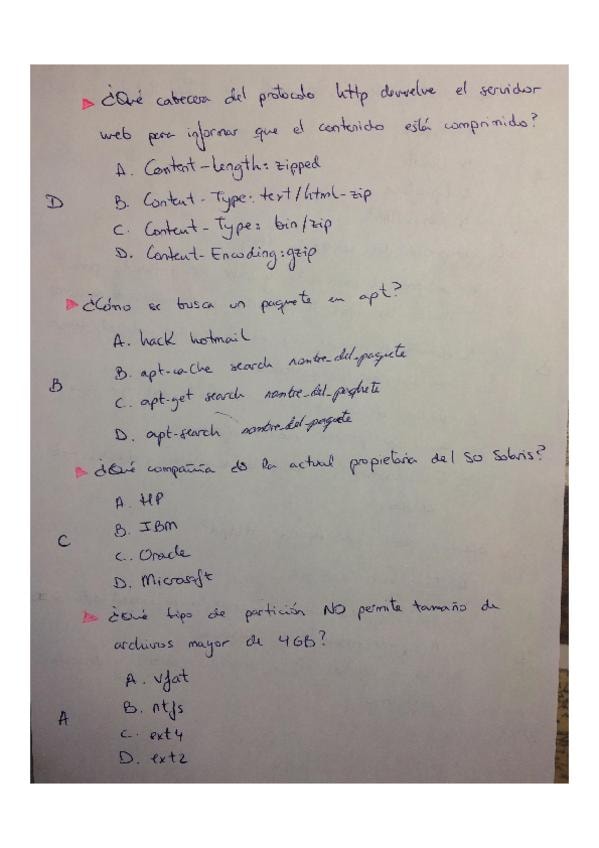 ¿Qué cabecera del protocolo http devuelve el servidor
web para informar que el contenido está comprimido?
A. Content-Length: zipped
D
B. Content-Type: text/html-zip
C. Content-Type: bin/zip
D. Content-Encoding: gzip
¿Cómo se busca un paquete en apt?
A. hack hotmail
B
B. apt-cache search nombre_del_paquete
C. apt-get search nombre_del_paquete
D. apt-search nombre_del_paquete
¿Qué compañia es la actual propietaria del SO Solaris?
A. HP
B. IBM
C
C. Oracle
D. Microsoft
¿Qué tipo de partición NO permite tamaño de
archivos mayor de 4GB?
A. vfat
B. ntfs
A
C. ext4
D. ext2